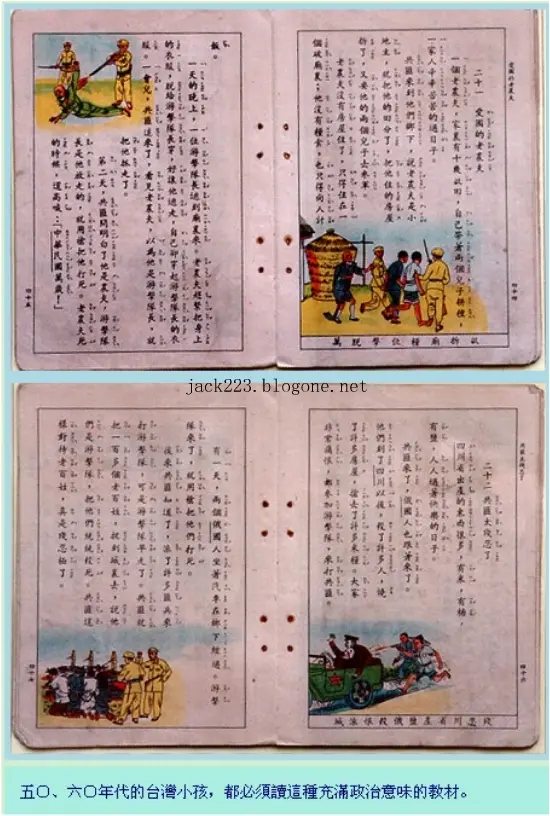 愛國的老農夫
二十一 愛國的老農夫
一個老農夫，家裏有十幾畝田，自己帶著兩個兒子耕種，
一家人辛辛苦苦的過日子。
共匪來到他們鄉下，說老農夫是小
地主，就把他的田分了，把他住的房屋
拆了，又要他的兩個兒子去參軍。
老農夫沒有房屋住了，只得住在一
個破廟裏；他沒有糧食，也只得向人討
畝拆廟種位擊脫萬
四十四
飯。
一天的晚上，一位游擊隊長逃到廟裏來，老農夫趕緊把身上
的衣服，脫給游擊隊長穿，好讓他逃走，自己卻穿起游擊隊長的衣
服。一會兒，共匪追來了，看見老農夫，以為他是游擊隊長，就
把他捉走了。
第二天，共匪問明白了他是農夫，游擊隊
長是他放走的，就用槍把他打死。老農夫死
的時候，還高喊：「中華民國萬歲！」
四十五
jack223.blogone.net
共匪太殘忍了
二十二 共匪太殘忍了
四川省出產的東西很多，有米，有糖，
有鹽，人人過著快樂的日子。
共匪來了，俄國人也跟著來了。
他們到了四川以後，殺了許多人，燒
了許多房屋，搶去了許多米糧。大家
非常痛恨，都參加游擊隊，來打共匪。
殘忍川省產鹽俄殺恨派城
四十六
有一天，兩個俄國人坐著汽車在鄉下經過。游擊
隊來了，就用槍把他們打死。
後來共匪知道了，派了許多匪兵來
打游擊隊，可是游擊隊早走了。共匪就
把一百多個老百姓，捉到城裏去，說他
們是游擊隊，把他們統統殺死。共匪這
樣對待老百姓，真是殘忍極了。
四十七
五〇、六〇年代的台灣小孩，都必須讀這種充滿政治意味的教材。